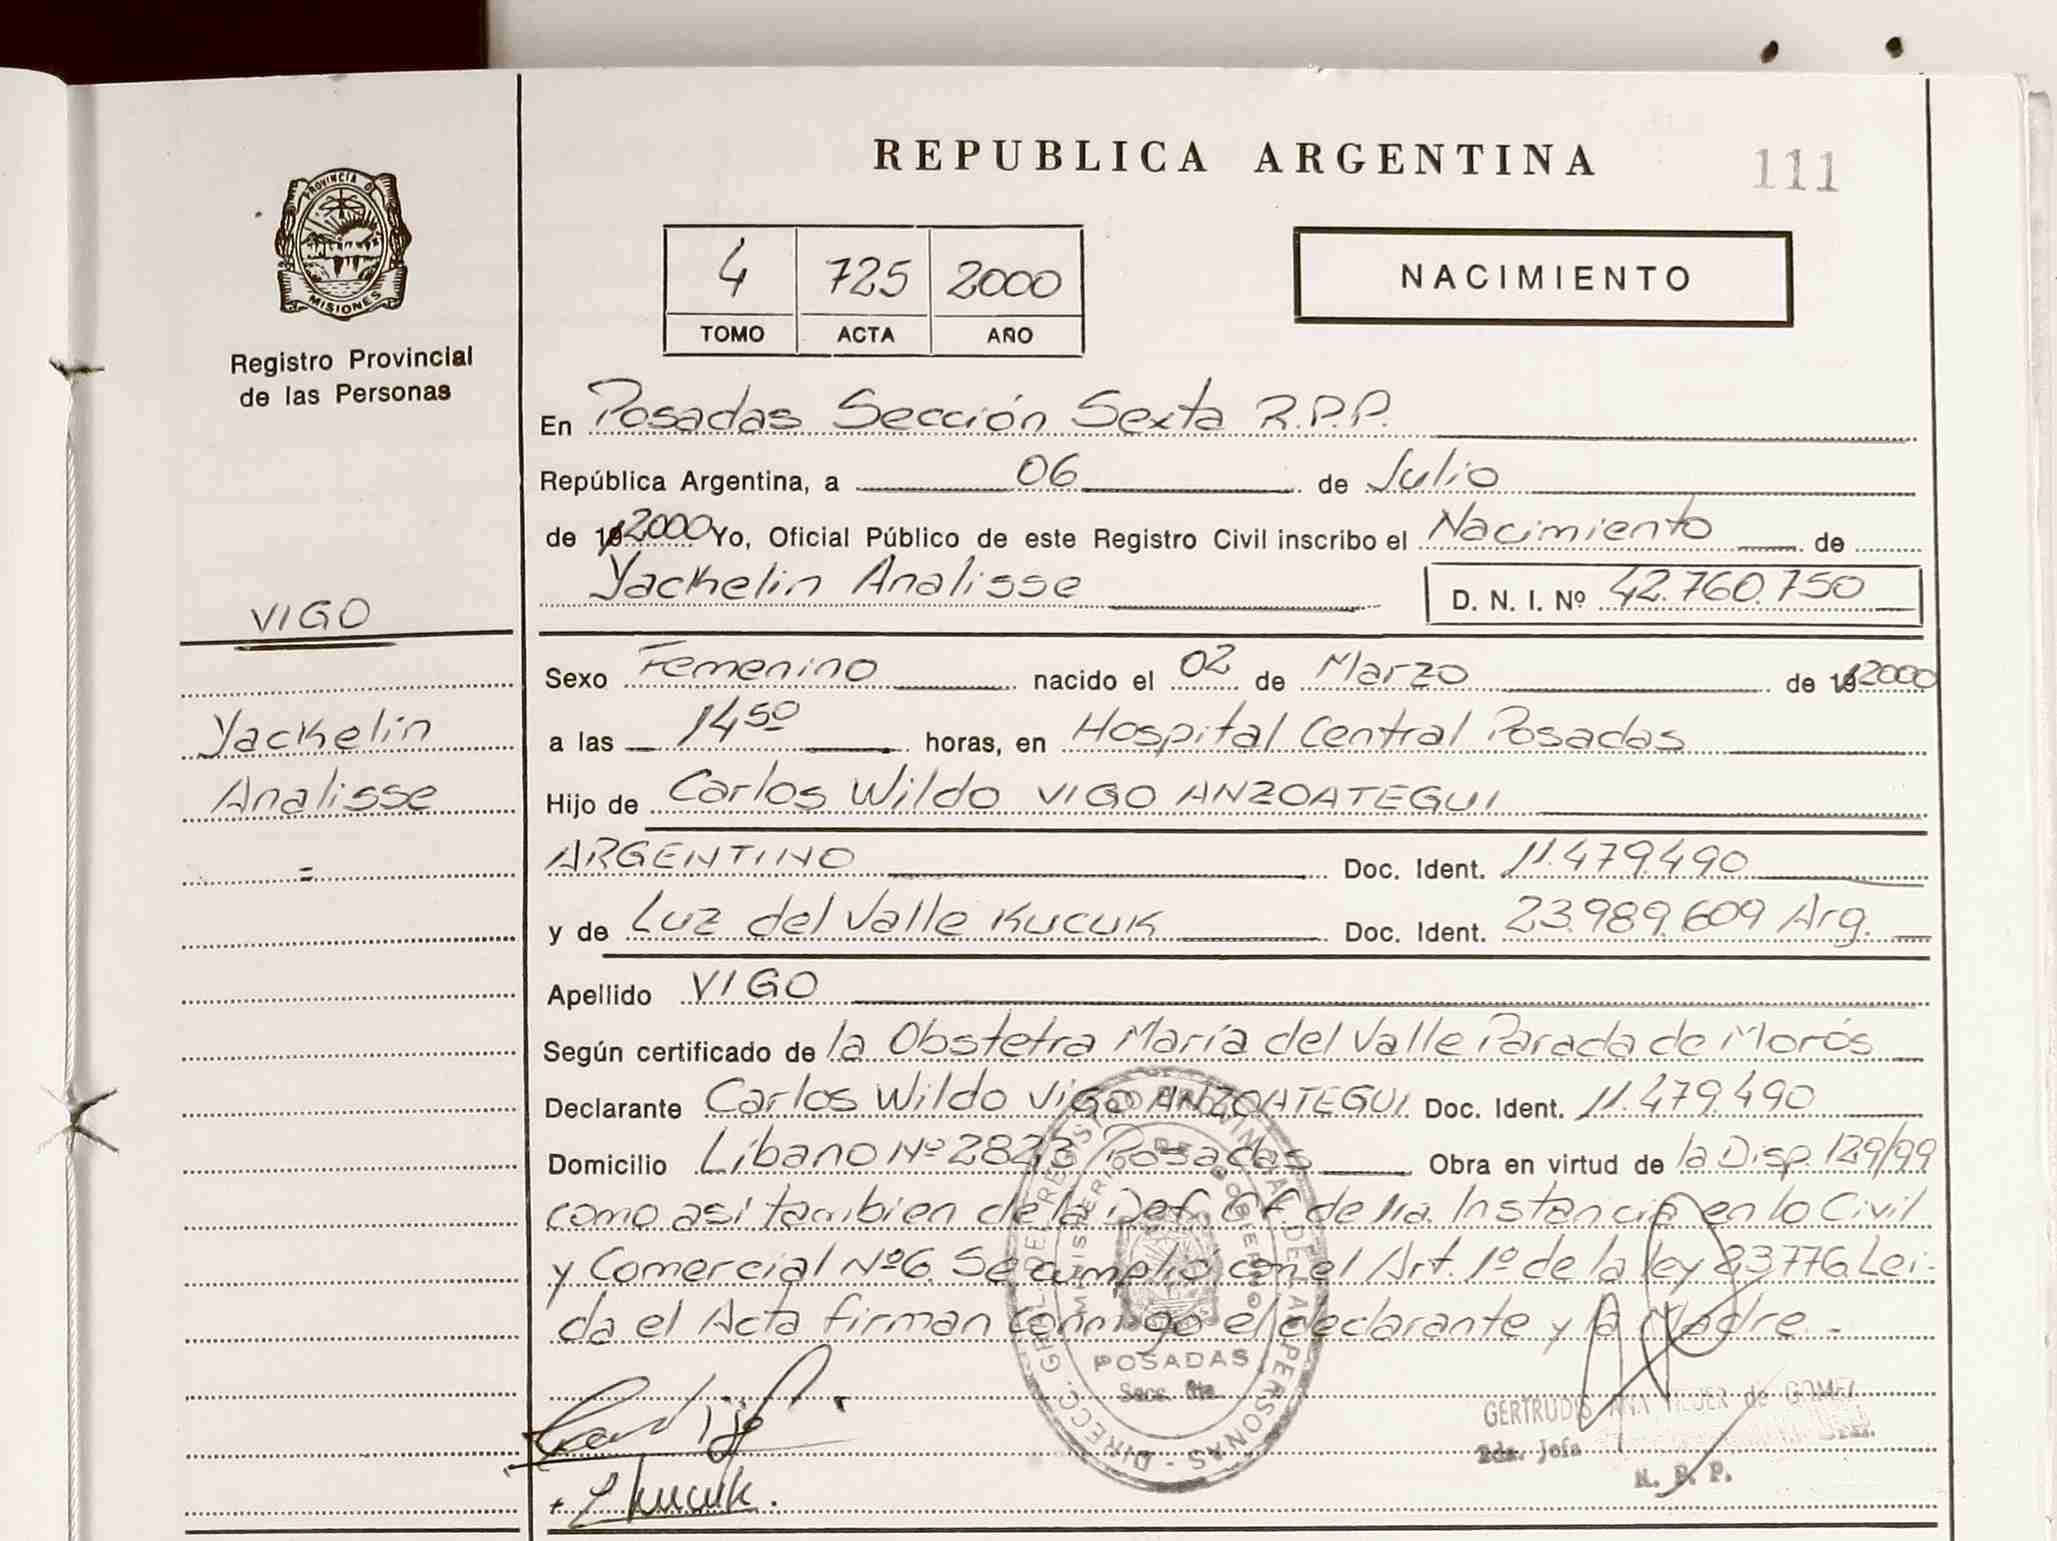 REPUBLICA ARGENTINA
111
PROVINCIA D
MISIONES
Registro Provincial
de las Personas
4 725 2000
TOMO ACTA AÑO
NACIMIENTO
En Posadas Sección Sexta R.P.P.
República Argentina, a 06 de Julio
de 192000 Yo, Oficial Público de este Registro Civil inscribo el Nacimiento de
Yackelin Analisse D. N. I. Nº 42.760.750
VIGO
Yackelin
Analisse
=
Sexo Femenino nacido el 02 de Marzo de 192000
a las 14 50 horas, en Hospital Central Posadas
Hijo de Carlos Wildo VIGO ANZOATEGUI
ARGENTINO Doc. Ident. 11.479.490
y de Luz del Valle KUCUK Doc. Ident. 23.989.609 Arg.
Apellido VIGO
Según certificado de la Obstetra María del Valle Parada de Morós
Declarante Carlos Wildo VIGO ANZOATEGUI Doc. Ident. 11.479.490
Domicilio Líbano Nº 2823 Posadas Obra en virtud de la Disp. 129/99
como así tambien de la Def. Of. de 1ra. Instancia en lo Civil
y Comercial Nº6. Se cumplió con el Art. 1º de la ley 23776. Lei-
da el Acta firman conmigo el declarante y la Madre.-
DIRECC. GRAL. DEL REGISTRO PROVINCIAL DE LAS PERSONAS
MINISTERIO DE GOBIERNO
POSADAS
Secc. 6ta.
GERTRUDIS ANA de GOMEZ
2da. Jefa
R. P. P.